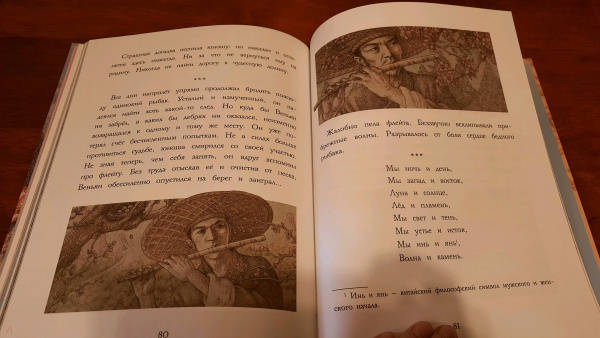 Страшная догадка настигла юношу: он навеки в этом
месте здесь навсегда. Ни за что не вернуться ему на
родину. Никогда не найти дорогу в чудесную долину.
***
Все дни напролёт упрямо продолжал бродить
одинокий рыбак. Усталый и измученный, он
найти хоть какой-то след. Но куда бы Веньян
ни забрёл, в каких бы дебрях ни оказался, неизменно
возвращался к одному и тому же месту. Он уже по-
терял счёт бесчисленным попыткам. Не в силах больше
противиться судьбе, юноша смирился со своей участью.
Не зная теперь, чем себя занять, он вдруг вспомнил
про флейту. Без труда отыскав её и очистив от песка,
Веньян обессиленно опустился на берег и заиграл...
80
Жалобно пела флейта. Беззвучно всхлипывали при-
брежные волны. Разрывалось от боли сердце бедного
рыбака.
***
Мы ночь и день,
Мы запад и восток,
Луна и солнце,
Лёд и пламень,
Мы свет и тень,
Мы устье и исток,
Мы инь и янь¹,
Волна и камень.
¹ Инь и янь — китайский философский символ мужского и жен-
ского начала.
81